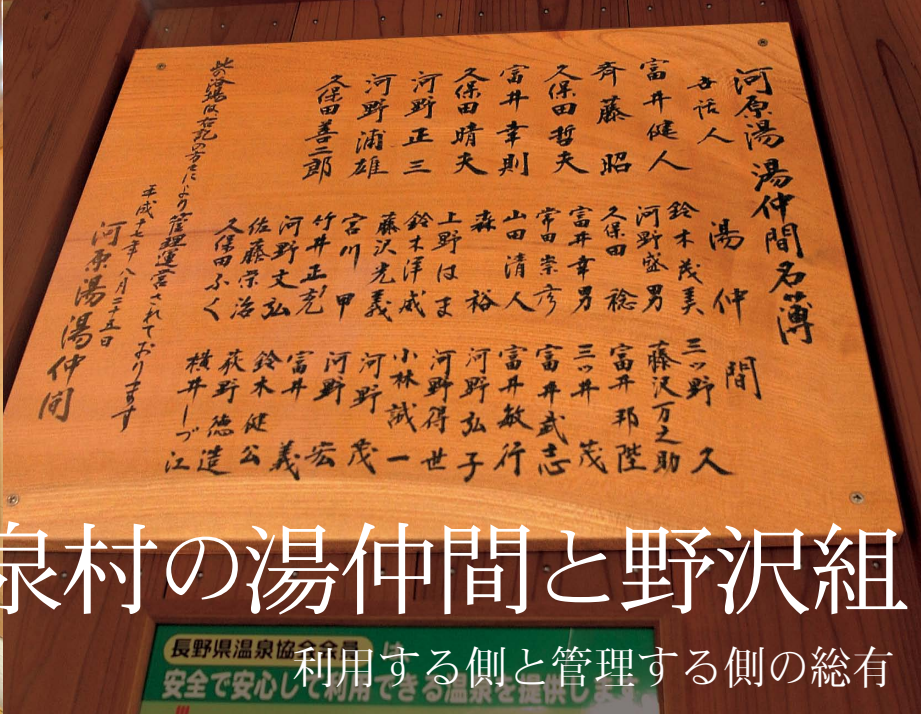 河原湯湯仲間名簿
世話人
富井健人
斉藤 昭
久保田哲夫
富井幸則
久保田晴夫
河野正三
河野浦雄
久保田善二郎
湯仲間
鈴木茂美
河野盛男
久保田 稔
富井幸男
常田崇彦
山田清人
森 裕
上野はま
鈴木洋威
藤沢光義
宮川 甲
竹井正克
河野文弘
佐藤栄治
久保田ふく
三ッ野 久
藤沢万之助
富井邦陛
三ッ井 茂
富井武志
富井敏行
河野弘子
河野得世
小林誠一
河野 茂
河野 宏
富井 義
鈴木健公
萩野徳造
横井しづ江
此の浴場は右記の方々により管理運営されております
平成十七年八月二十五日
河原湯湯仲間
泉村の湯仲間と野沢組
利用する側と管理する側の総有
長野県温泉協会会員 は、
安全で安心して利用できる温泉を提供します